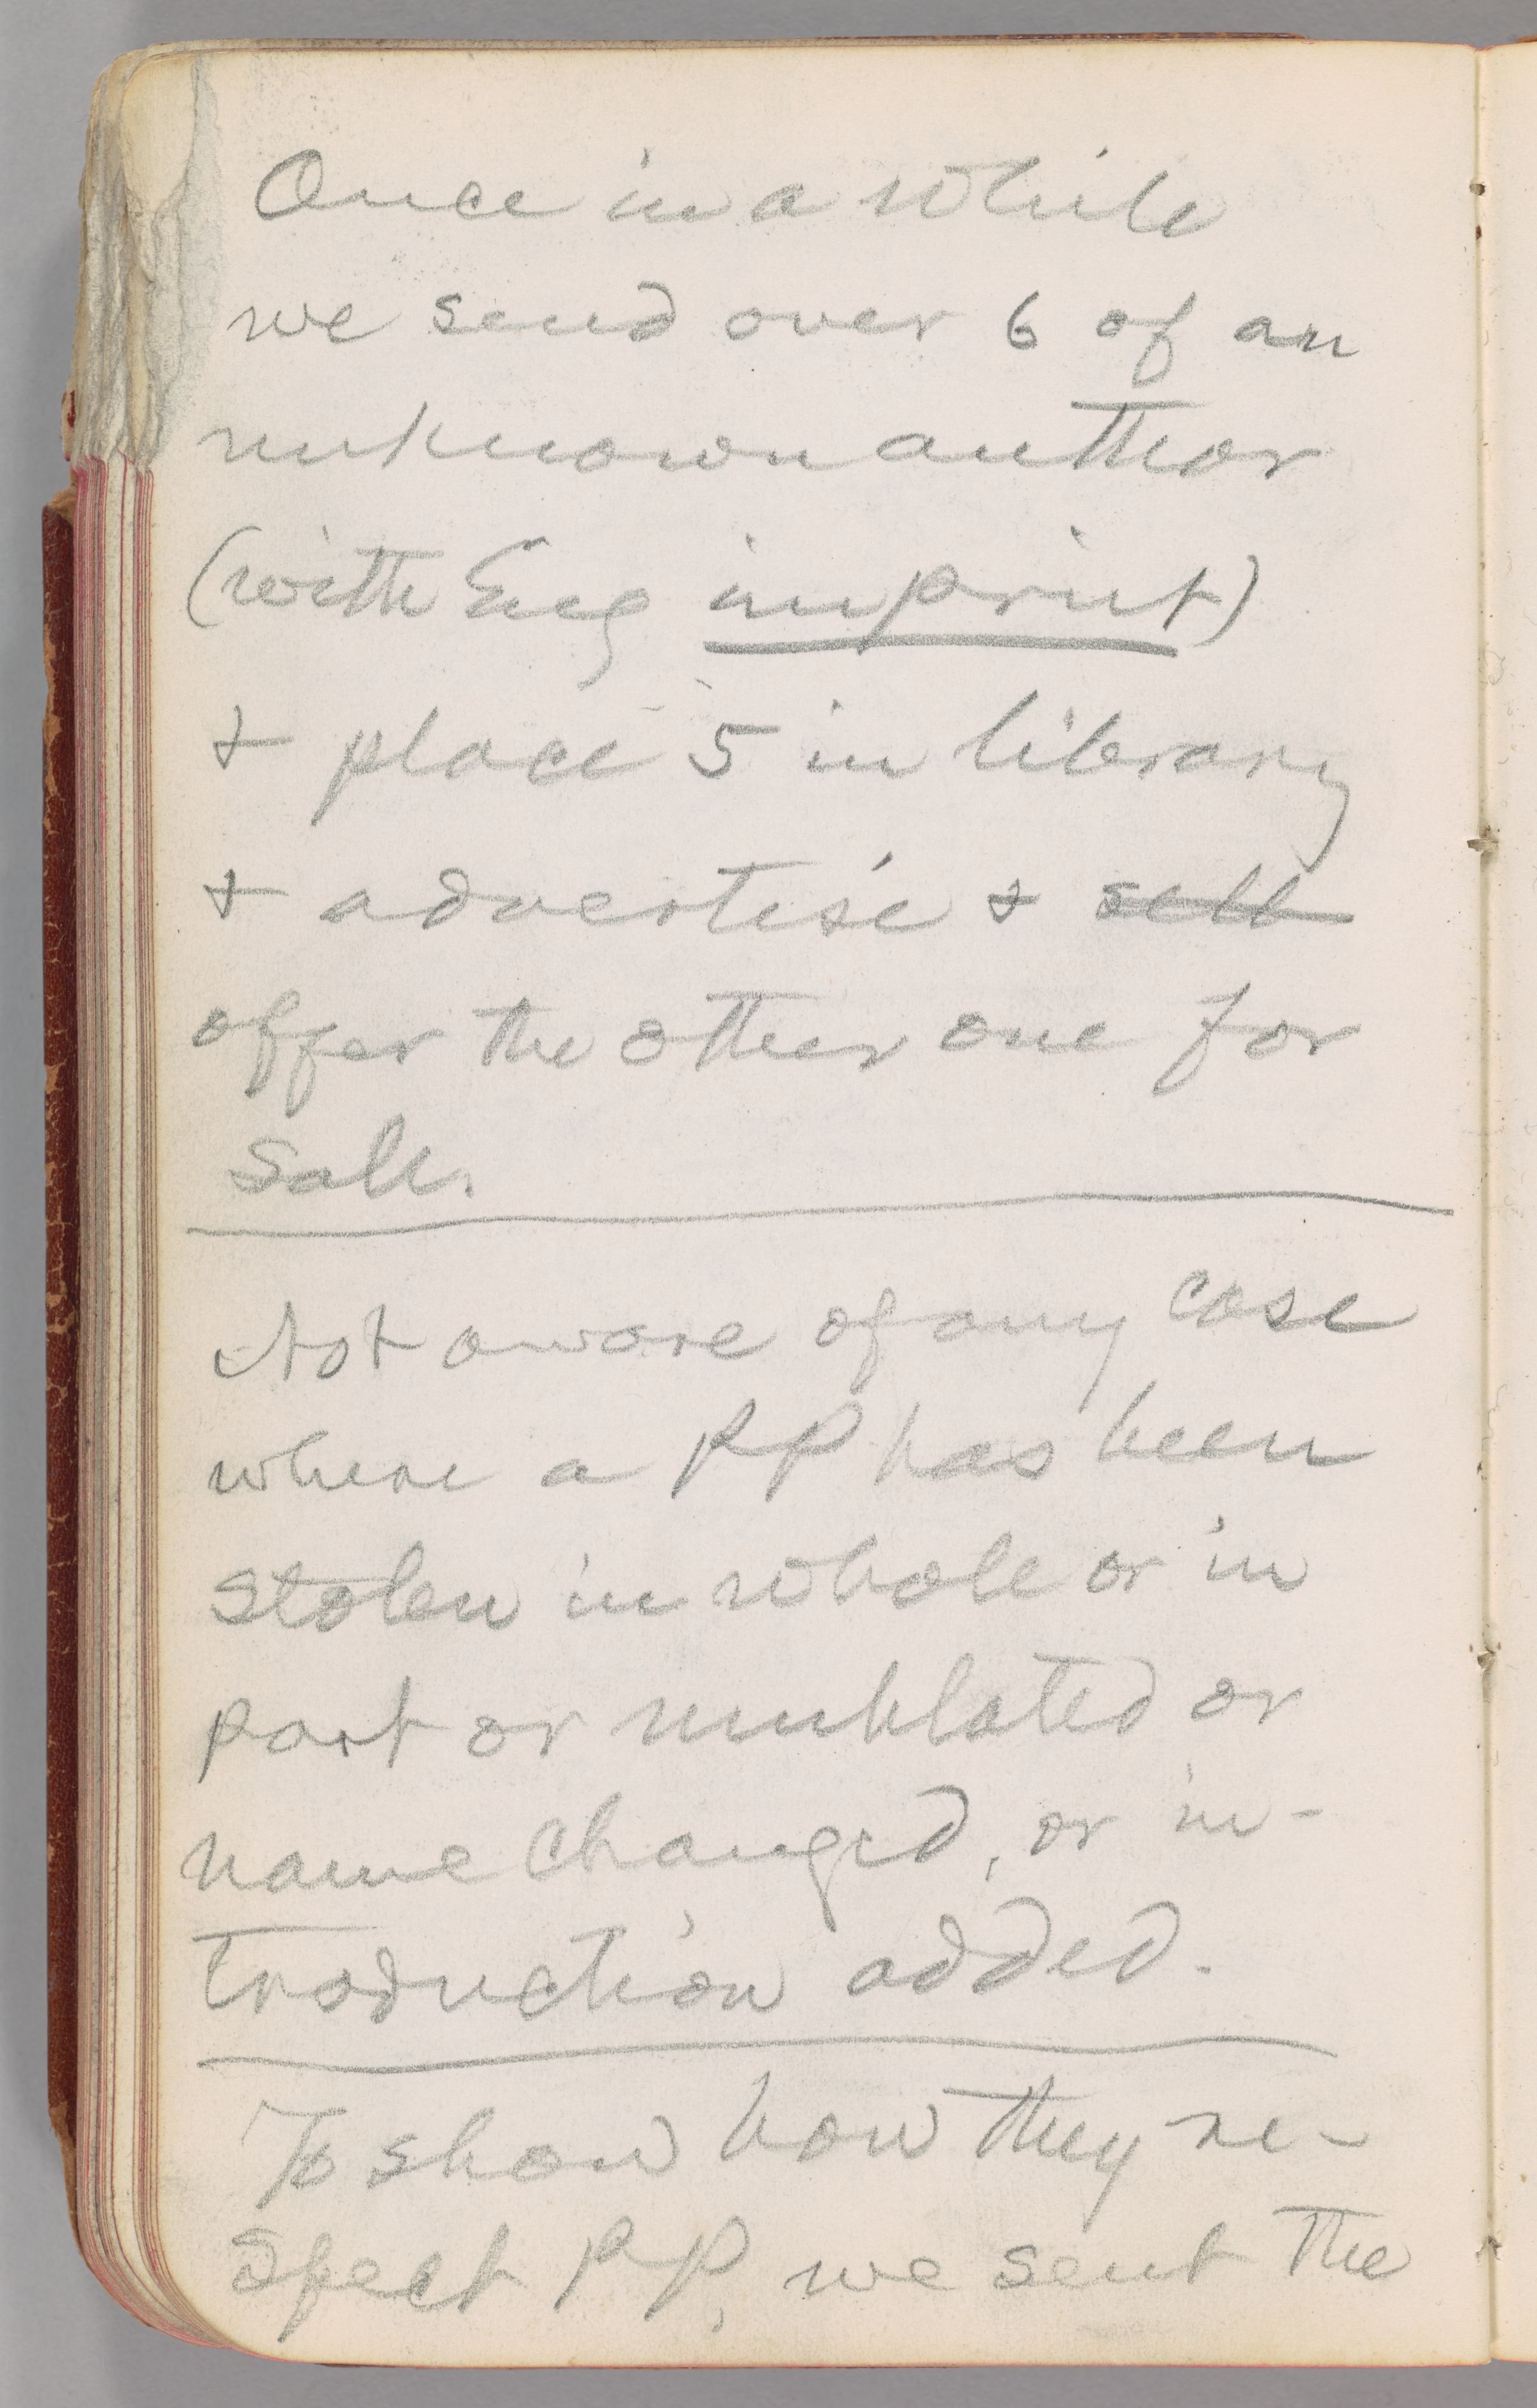 Once in a while
we send over 6 of an
unknown author
(with Eng imprint)
& place 5 in library
& advertise & sell
offer the other one for
sale.
Not aware of any case
where a PP has been
stolen in whole or in
part or mutilated or
name changed, or in-
troduction added.
To show how they re-
spect PP, we sent the